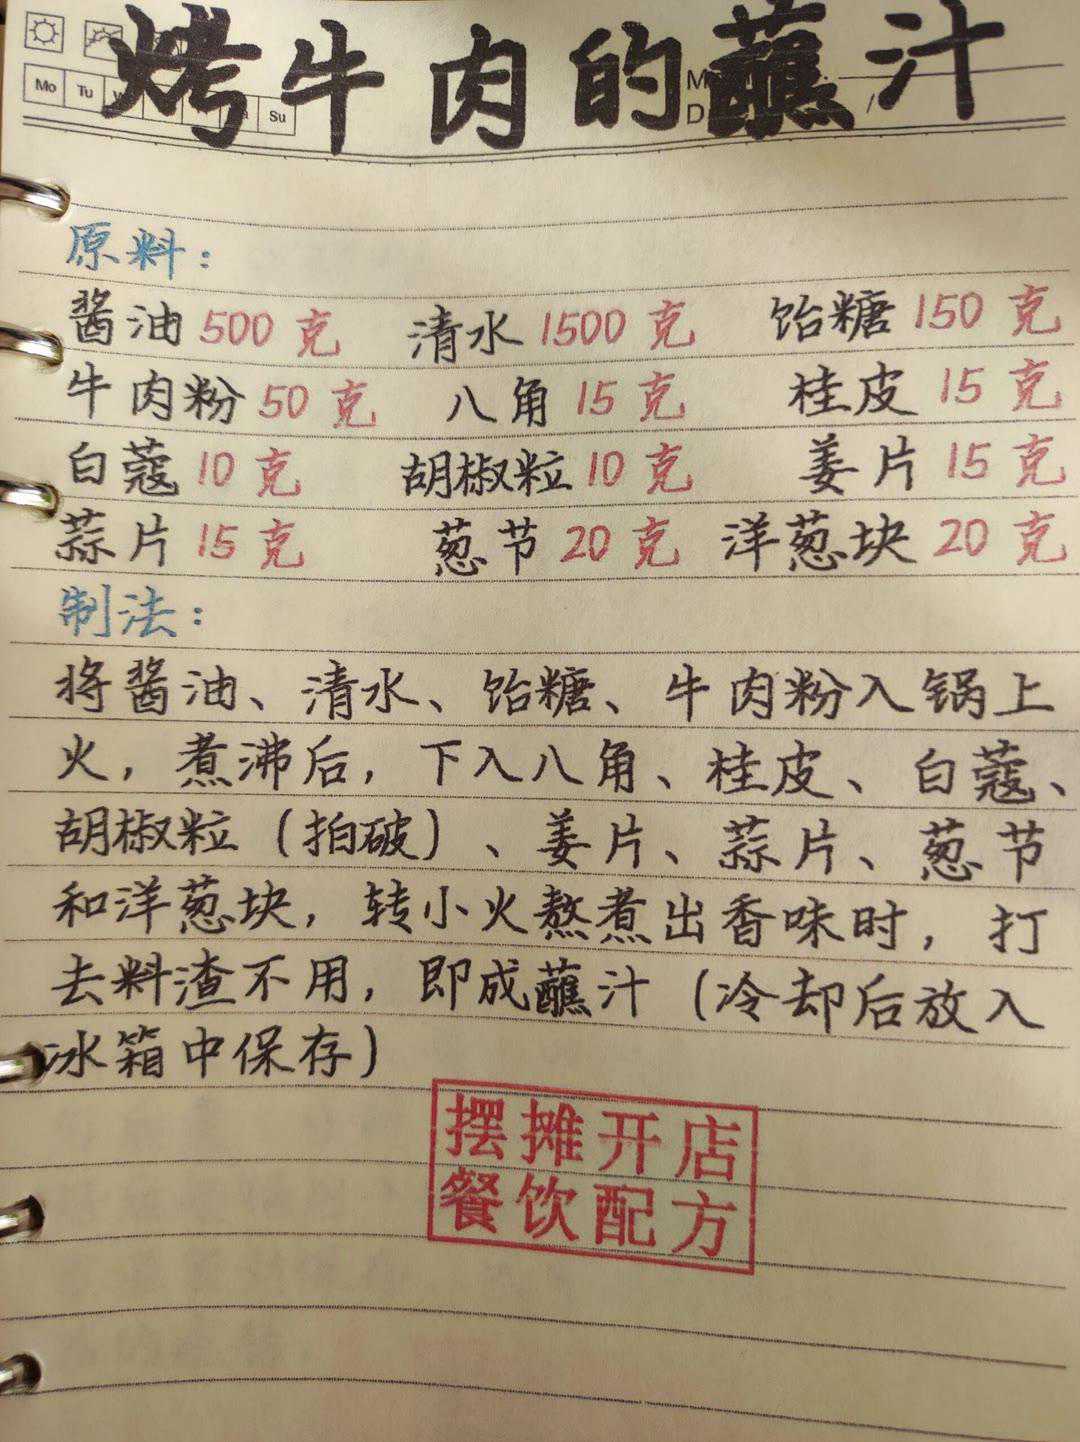 烤牛肉的蘸汁
Mo Tu Su
原料：
酱油500克 清水1500克 饴糖150克
牛肉粉50克 八角15克 桂皮15克
白蔻10克 胡椒粒10克 姜片15克
蒜片15克 葱节20克 洋葱块20克
制法：
将酱油、清水、饴糖、牛肉粉入锅上
火，煮沸后，下入八角、桂皮、白蔻、
胡椒粒（拍破）、姜片、蒜片、葱节
和洋葱块，转小火熬煮出香味时，打
去料渣不用，即成蘸汁（冷却后放入
冰箱中保存）
摆摊开店
餐饮配方